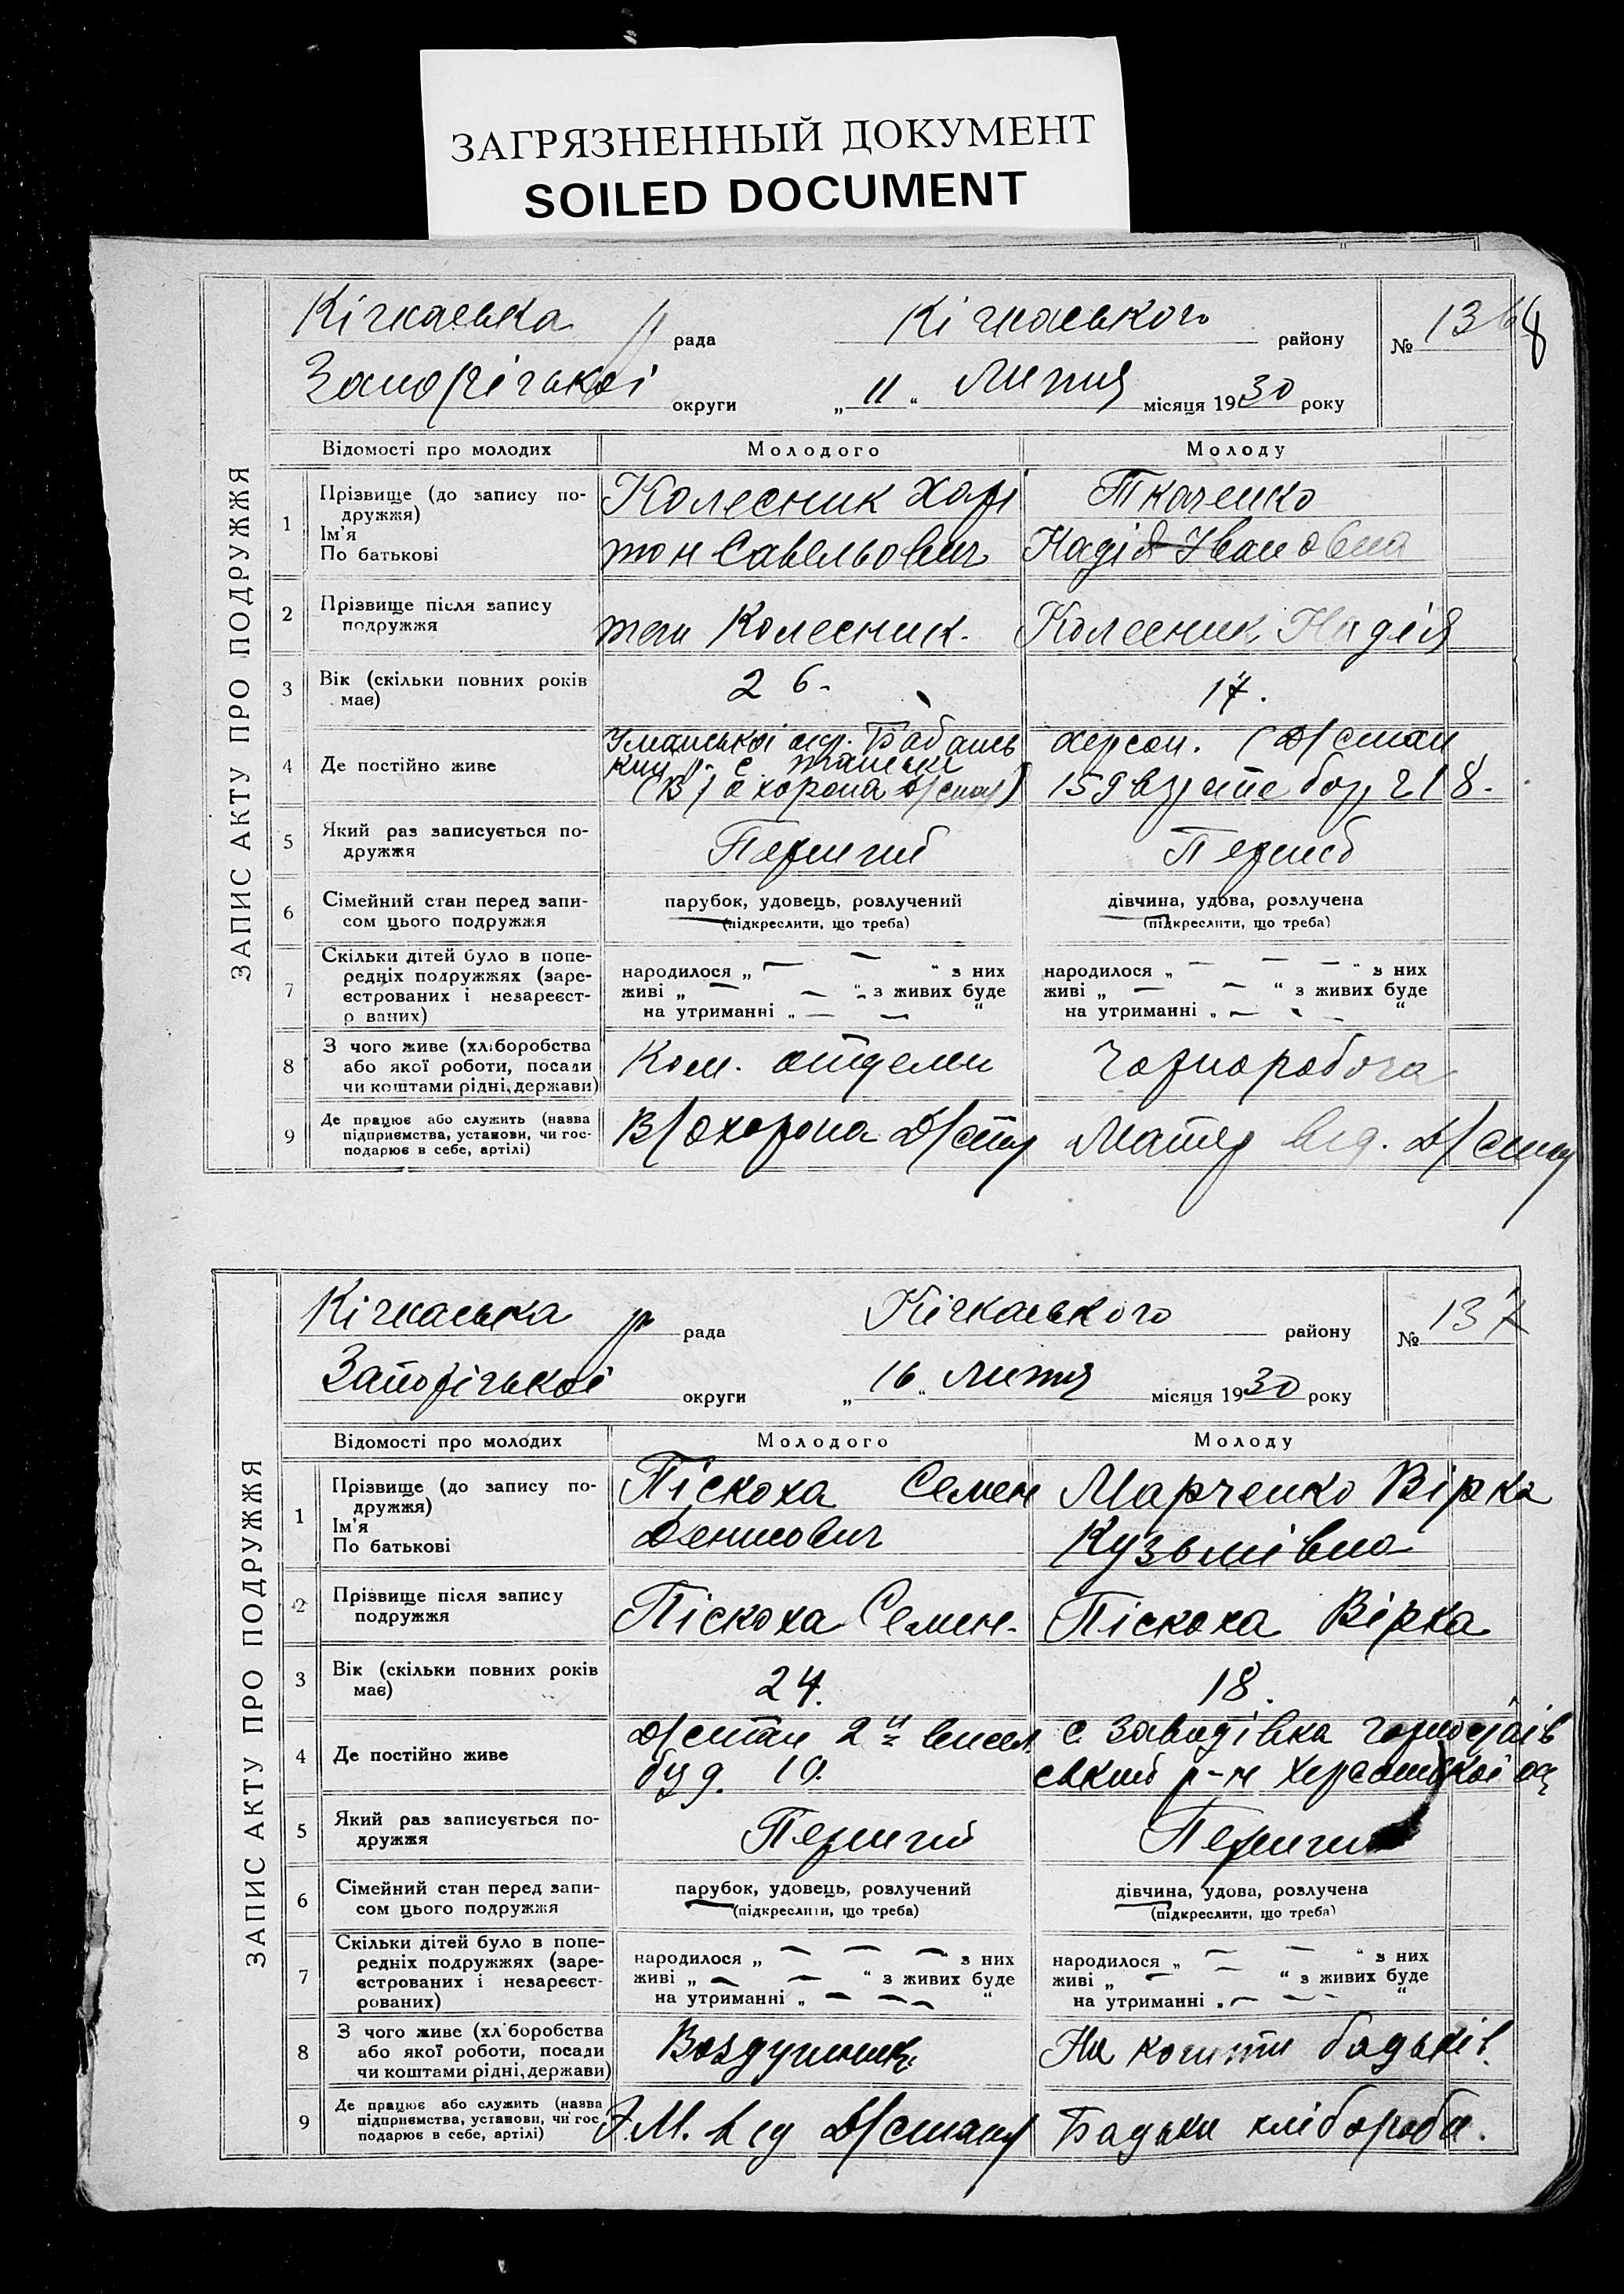 ЗАГРЯЗНЕННЫЙ ДОКУМЕНТ
SOILED DOCUMENT
ЗАПИС АКТУ ПРО ПОДРУЖЖЯ
Кічкаська р рада Кічкаського району № 136
Запорізької округи „ 11 “ Липня місяця 1930 року
Відомості про молодих Молодого Молоду
1 Прізвище (до запису по-
дружжя)
Ім'я
По батькові
Колесник Харі
тон Савельович
Ткаченко
Надія Ивановна
2 Прізвище після запису
подружжя
теж Колесник. Колесник Надія
3 Вік (скільки повних років
має)
26. 17.
4 Де постійно живе
Уманської окр. Бабансь
(В/охорона Д/стан)
Херсон. (Д/стан
159 218.
5 Який раз записується по-
дружжя
Перший Перший
6 Сімейний стан перед запи-
сом цього подружжя
парубок, удовець, розлучений
(підкреслити, що треба)
дівчина, удова, розлучена
(підкреслити, що треба)
7 Скільки дітей було в попе-
редніх подружжях (заре-
єстрованих і незареєст-
р ваних)
народилося „ — — “ з них
живі „ — — “ з живих буде
на утриманні „ — — “
народилося „ — — — “ з них
живі „ — — “ з живих буде
на утриманні „ — - - “
8 З чого живе (хліборобства
або якої роботи, посади
чи коштами рідні, держави)
Ком. отделен Чорноробоча
9 Де працює або служить (назва
підприємства, установи, чи гос-
подарює в себе, артілі)
В/охорона Д/стан Матер від. Д/стан
ЗАПИС АКТУ ПРО ПОДРУЖЖЯ
Кічкаська р рада Кічкаського району № 137
Запорізької округи „ 16 “ Липня місяця 1930 року
Відомості про молодих Молодого Молоду
1 Прізвище (до запису по-
дружжя)
Ім'я
По батькові
Піскоха Семен
Денисович
Марченко Вірка
Кузьмівна
2 Прізвище після запису
подружжя
Піскоха Семен. Піскоха Вірка
3 Вік (скільки повних років
має)
24. 18.
4 Де постійно живе
Д/стан 2й висел.
буд. 10.
с. Завадівка Горностаїв
ський р-н Херсонської ок
5 Який раз записується по-
дружжя
Перший Перший
6 Сімейний стан перед запи-
сом цього подружжя
парубок, удовець, розлучений
(підкреслити, що треба)
дівчина, удова, розлучена
(підкреслити, що треба)
7 Скільки дітей було в попе-
редніх подружжях (заре-
єстрованих і незареєст-
рованих)
народилося „ — — — “ з них
живі „ — — “ з живих буде
на утриманні „ — — — “
народилося „ — — “ з них
живі „ — — “ з живих буде
на утриманні „ — — - “
8 З чого живе (хл боробства
або якої роботи, посади
чи коштами рідні, держави)
Воздушник На кошти батьків.
9 Де працює або служить (назва
підприємства, установи, чи гос
подарює в себе, артілі)
Е.М. від Д/стану Батьки хлібороби.